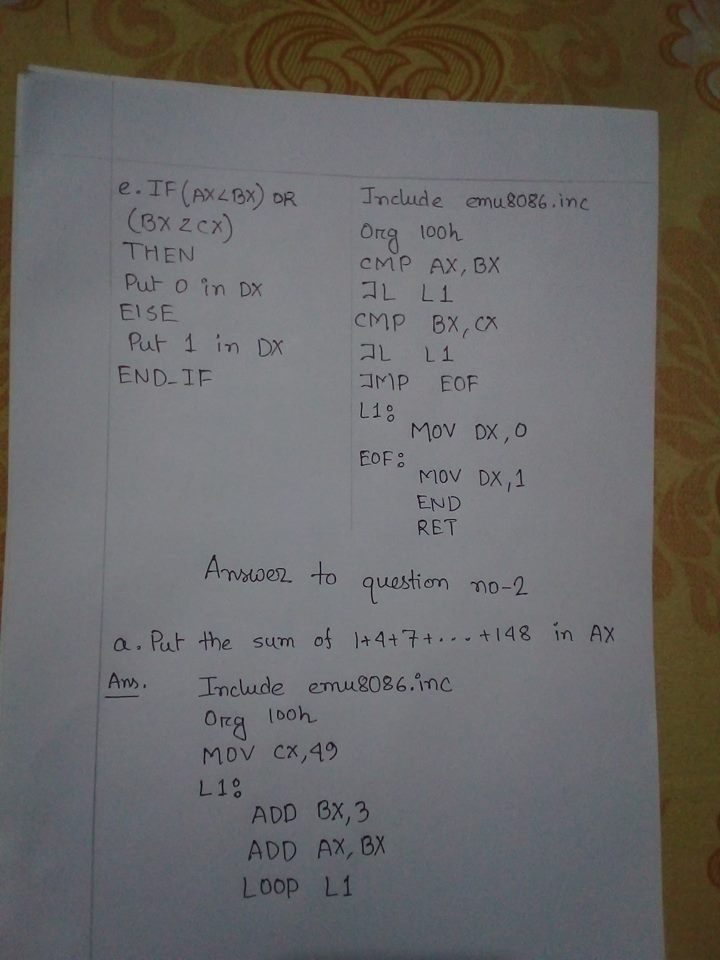 e. IF (AX<BX) OR
(BX < CX)
THEN
Put 0 in DX
ElSE
Put 1 in DX
END_IF
Include emu8086.inc
Org 100h
CMP AX, BX
JL L1
CMP BX, CX
JL L1
JMP EOF
L1:
MOV DX, 0
EOF:
MOV DX, 1
END
RET
Answer to question no-2
a. Put the sum of 1+4+7+...+148 in AX
Ans. Include emu8086.inc
Org 100h
MOV CX, 49
L1:
ADD BX, 3
ADD AX, BX
LOOP L1